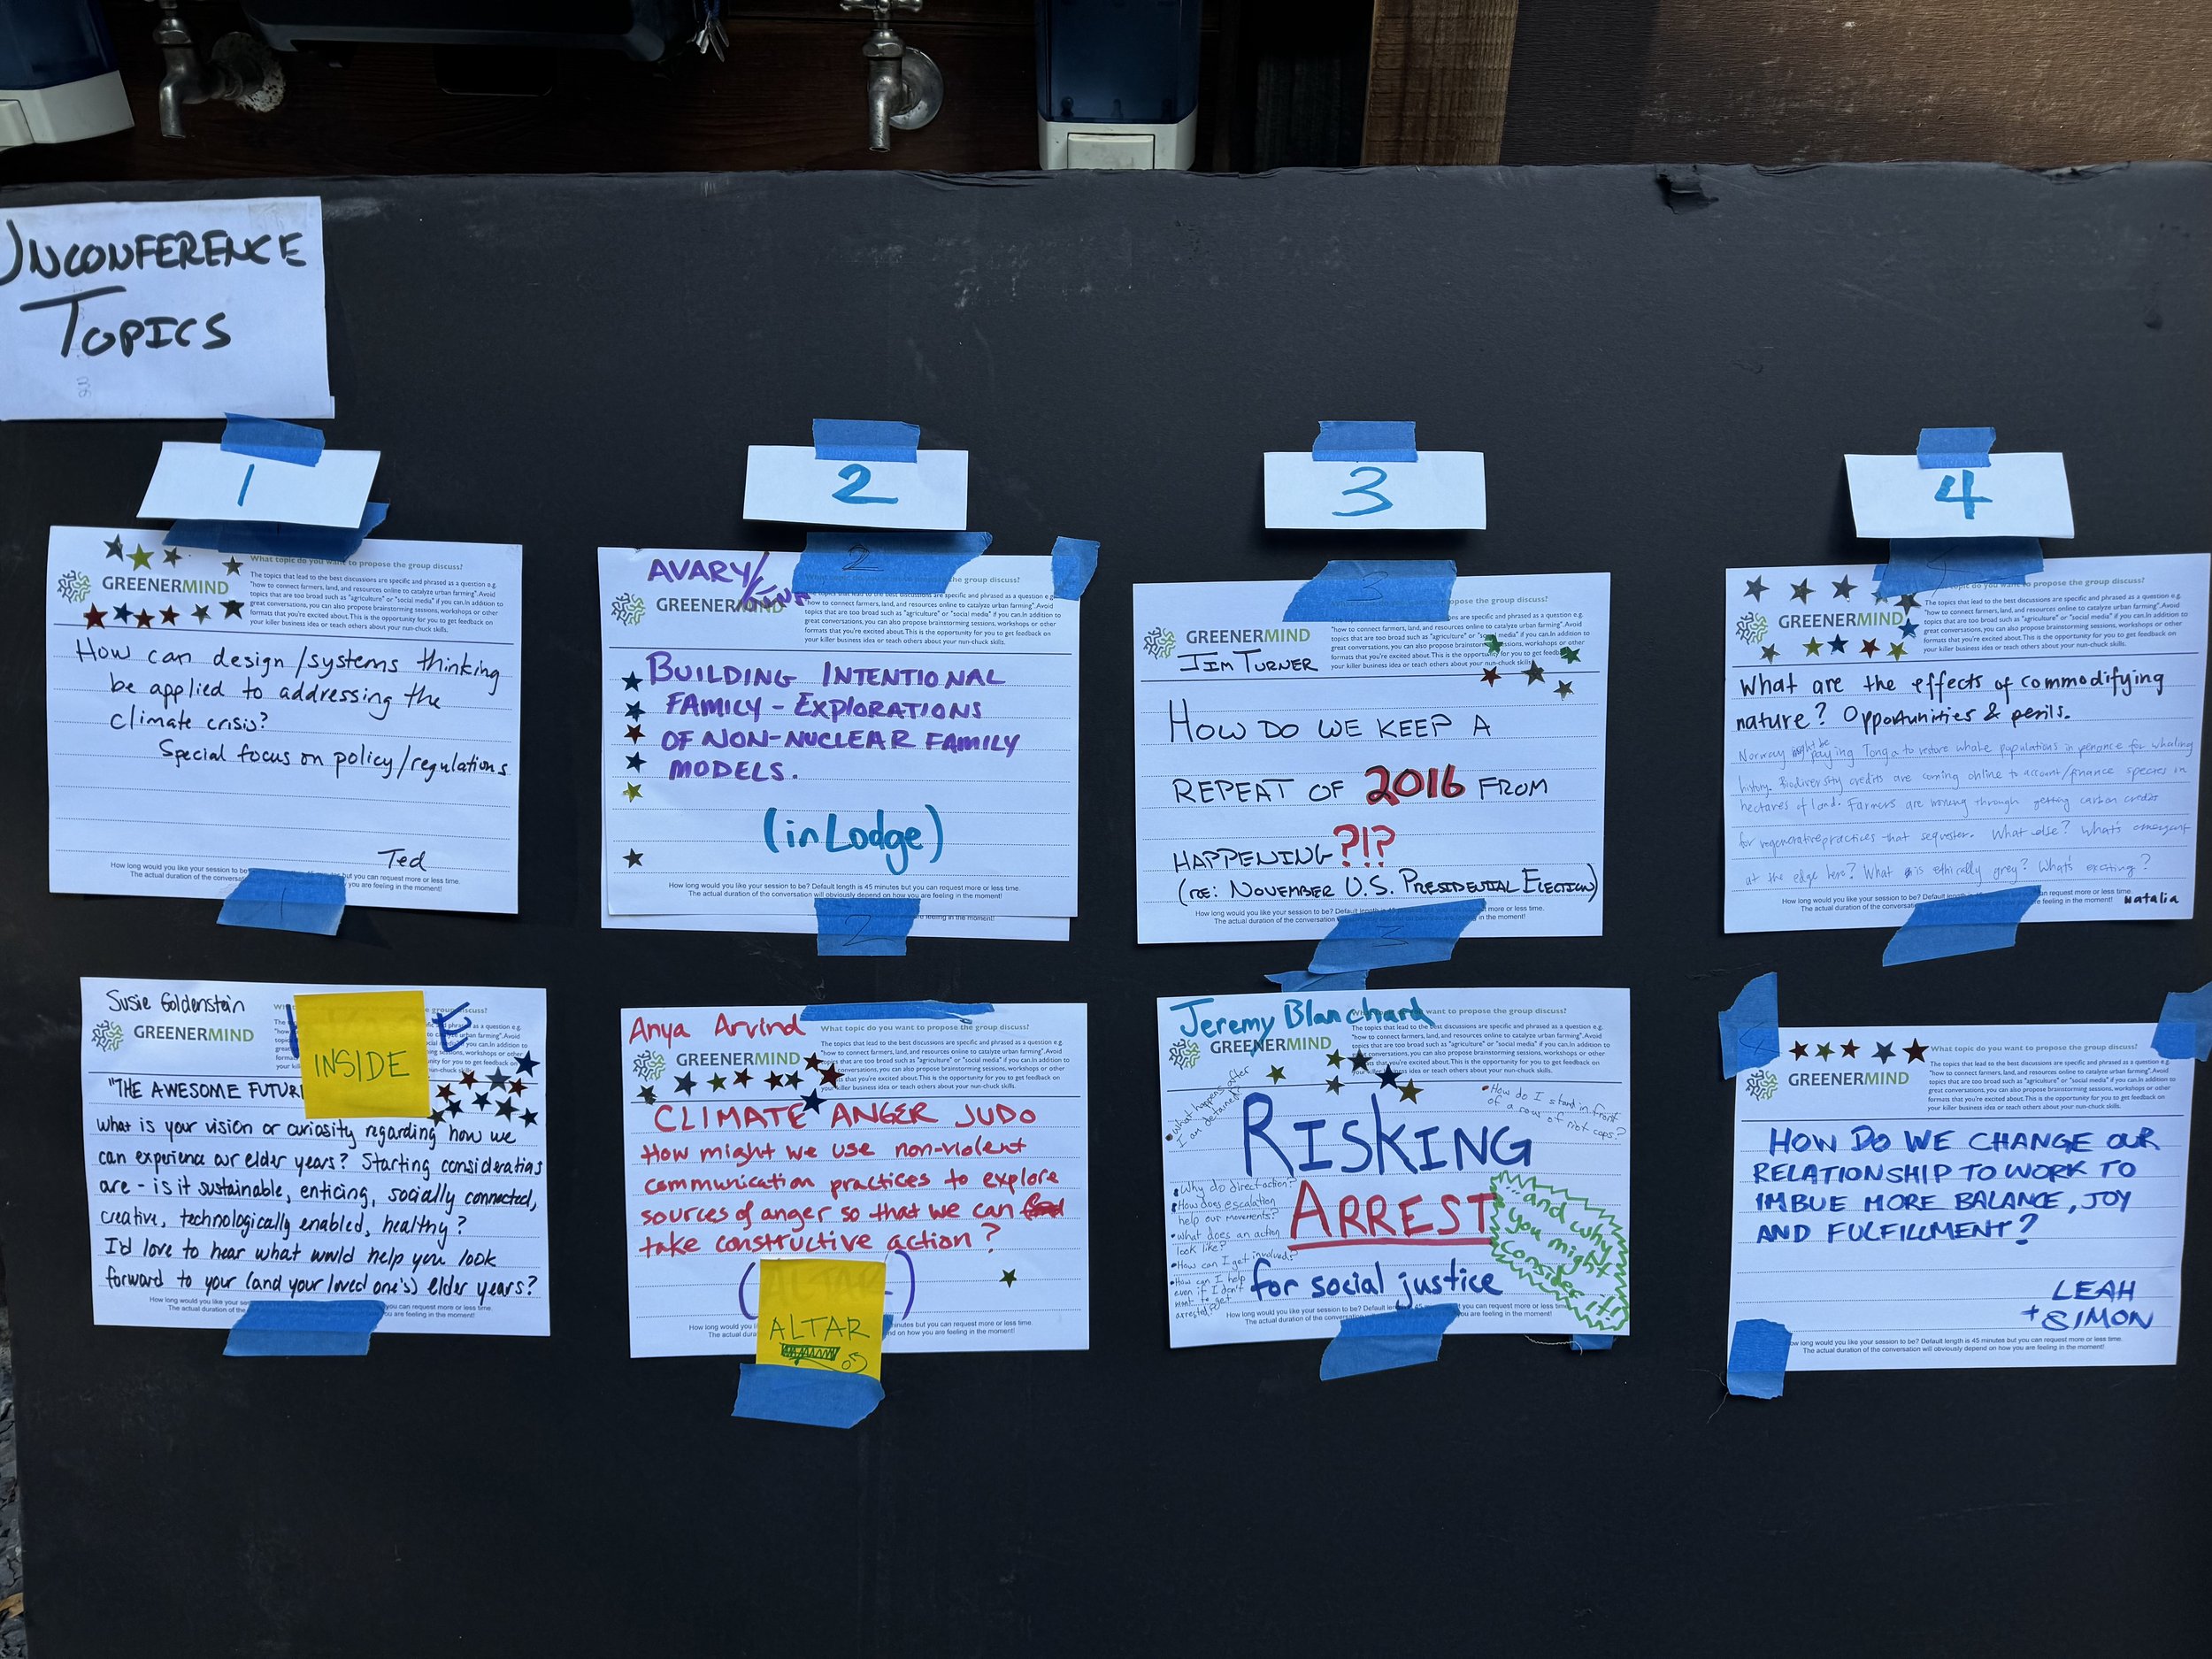 UNCONFERENCE
TOPICS
1
2
3
4
GREENERMIND
What topic do you want to propose the group discuss?
The topics that lead to the best discussions are specific and phrased as a question e.g.
"how to connect farmers, land, and resources online to catalyze urban farming". Avoid
topics that are too broad such as "agriculture" or "social media" if you can. In addition to
great conversations, you can also propose brainstorming sessions, workshops or other
formats that you're excited about. This is the opportunity for you to get feedback on
your killer business idea or teach others about your nun-chuck skills.
How can design/systems thinking
be applied to addressing the
climate crisis?
Special focus on policy/regulations
Ted
How long would you like your session to be
minutes but you can request more or less time.
The actual duration of the conversation
but you are feeling in the moment!
1
AVARY/
2
the group discuss?
GREENERMIND
topics that lead to the best discussions are specific and phrased as a question e.g.
"how to connect farmers, land, and resources online to catalyze urban farming". Avoid
topics that are too broad such as "agriculture" or "social media" if you can. In addition to
great conversations, you can also propose brainstorming sessions, workshops or other
formats that you're excited about. This is the opportunity for you to get feedback on
your killer business idea or teach others about your nun-chuck skills.
BUILDING INTENTIONAL
FAMILY - EXPLORATIONS
OF NON-NUCLEAR FAMILY
MODELS.
(in Lodge)
How long would you like your session to be? Default length is 45 minutes but you can request more or less time.
The actual duration of the conversation will obviously depend on how you are feeling in the moment!
are feeling in the moment!
2
3
propose the group discuss?
are specific and phrased as a question e.g.
GREENERMIND
"how to connect farmers, land, and resources online to catalyze urban farming". Avoid
topics that are too broad such as "agriculture" or "social media" if you can. In addition to
great conversations, you can also propose brainstorming sessions, workshops or other
formats that you're excited about. This is the opportunity for you to get feedback
your killer business idea or teach others about your nun-chuck skills.
JIM TURNER
HOW DO WE KEEP A
REPEAT OF 2016 FROM
HAPPENING ?!?
(RE: NOVEMBER U.S. PRESIDENTIAL ELECTION)
How long would you like your session to be? Default length is 45
more or less time.
The actual duration of the conversation
in the moment!
3
topic do you want to propose the group discuss?
GREENERMIND
The topics that lead to the best discussions are specific and phrased as a question e.g.
"how to connect farmers, land, and resources online to catalyze urban farming". Avoid
topics that are too broad such as "agriculture" or "social media" if you can. In addition to
great conversations, you can also propose brainstorming sessions, workshops or other
formats that you're excited about. This is the opportunity for you to get feedback on
your killer business idea or teach others about your nun-chuck skills.
What are the effects of commodifying
nature? Opportunities & perils.
Norway might be paying Tonga to restore whale populations in penance for whaling
history. Biodiversity credits are coming online to account/finance species in
hectares of land. Farmers are working through getting carbon credits
for regenerative practices that sequester. What else? What's emergent
at the edge here? What is ethically grey? What's exciting?
How long would you like your session to be? Default length
can request more or less time.
The actual duration of the conversation
are feeling in the moment!
Natalia
Susie Goldenstein
group discuss?
GREENERMIND
INSIDE
E
"THE AWESOME FUTURE
What is your vision or curiosity regarding how we
can experience our elder years? Starting considerations
are - is it sustainable, enticing, socially connected,
creative, technologically enabled, healthy?
I'd love to hear what would help you look
forward to your (and your loved one's) elder years?
How long would you like your
you can request more or less time.
The actual duration of the
you are feeling in the moment!
Anya Arvind
What topic do you want to propose the group discuss?
GREENERMIND
The topics that lead to the best discussions are specific and phrased as a question e.g.
"how to connect farmers, land, and resources online to catalyze urban farming". Avoid
topics that are too broad such as "agriculture" or "social media" if you can. In addition to
conversations, you can also propose brainstorming sessions, workshops or other
that you're excited about. This is the opportunity for you to get feedback on
your killer business idea or teach others about your nun-chuck skills.
CLIMATE ANGER JUDO
How might we use non-violent
communication practices to explore
sources of anger so that we can
take constructive action?
( )
ALTAR
How long would you
minutes but you can request more or less time.
The actual dura
end on how you are feeling in the moment!
Jeremy Blanchard
want to propose the group discuss?
GREENERMIND
The topics that lead to the best discussions are specific and phrased as a question e.g.
"how to connect farmers, land, and resources online to catalyze urban farming". Avoid
topics that are too broad such as "agriculture" or "social media" if you can. In addition to
conversations, you can also propose brainstorming sessions, workshops or other
that you're excited about. This is the opportunity for you to get feedback on
your killer business idea or teach others about your nun-chuck skills.
• What happens after
I am detained?
• How do I stand in front
of a row of riot cops?
RISKING
ARREST
for social justice
...and why
you might
consider it!
• Why do direct action?
• How does escalation
help our movements?
• What does an action
look like?
• How can I get involved?
• How can I help
even if I don't
want to get
arrested?
How long would you like your session to be? Default
you can request more or less time.
The actual duration of the conversation
you are feeling in the moment!
What topic do you want to propose the group discuss?
GREENERMIND
The topics that lead to the best discussions are specific and phrased as a question e.g.
"how to connect farmers, land, and resources online to catalyze urban farming". Avoid
topics that are too broad such as "agriculture" or "social media" if you can. In addition to
great conversations, you can also propose brainstorming sessions, workshops or other
formats that you're excited about. This is the opportunity for you to get feedback on
your killer business idea or teach others about your nun-chuck skills.
HOW DO WE CHANGE OUR
RELATIONSHIP TO WORK TO
IMBUE MORE BALANCE, JOY
AND FULFILLMENT?
LEAH
+ SIMON
How long would you like your session to be? Default length is 45 minutes but you can request more or less time.
The actual duration of the conversation will obviously depend on how you are feeling in the moment!